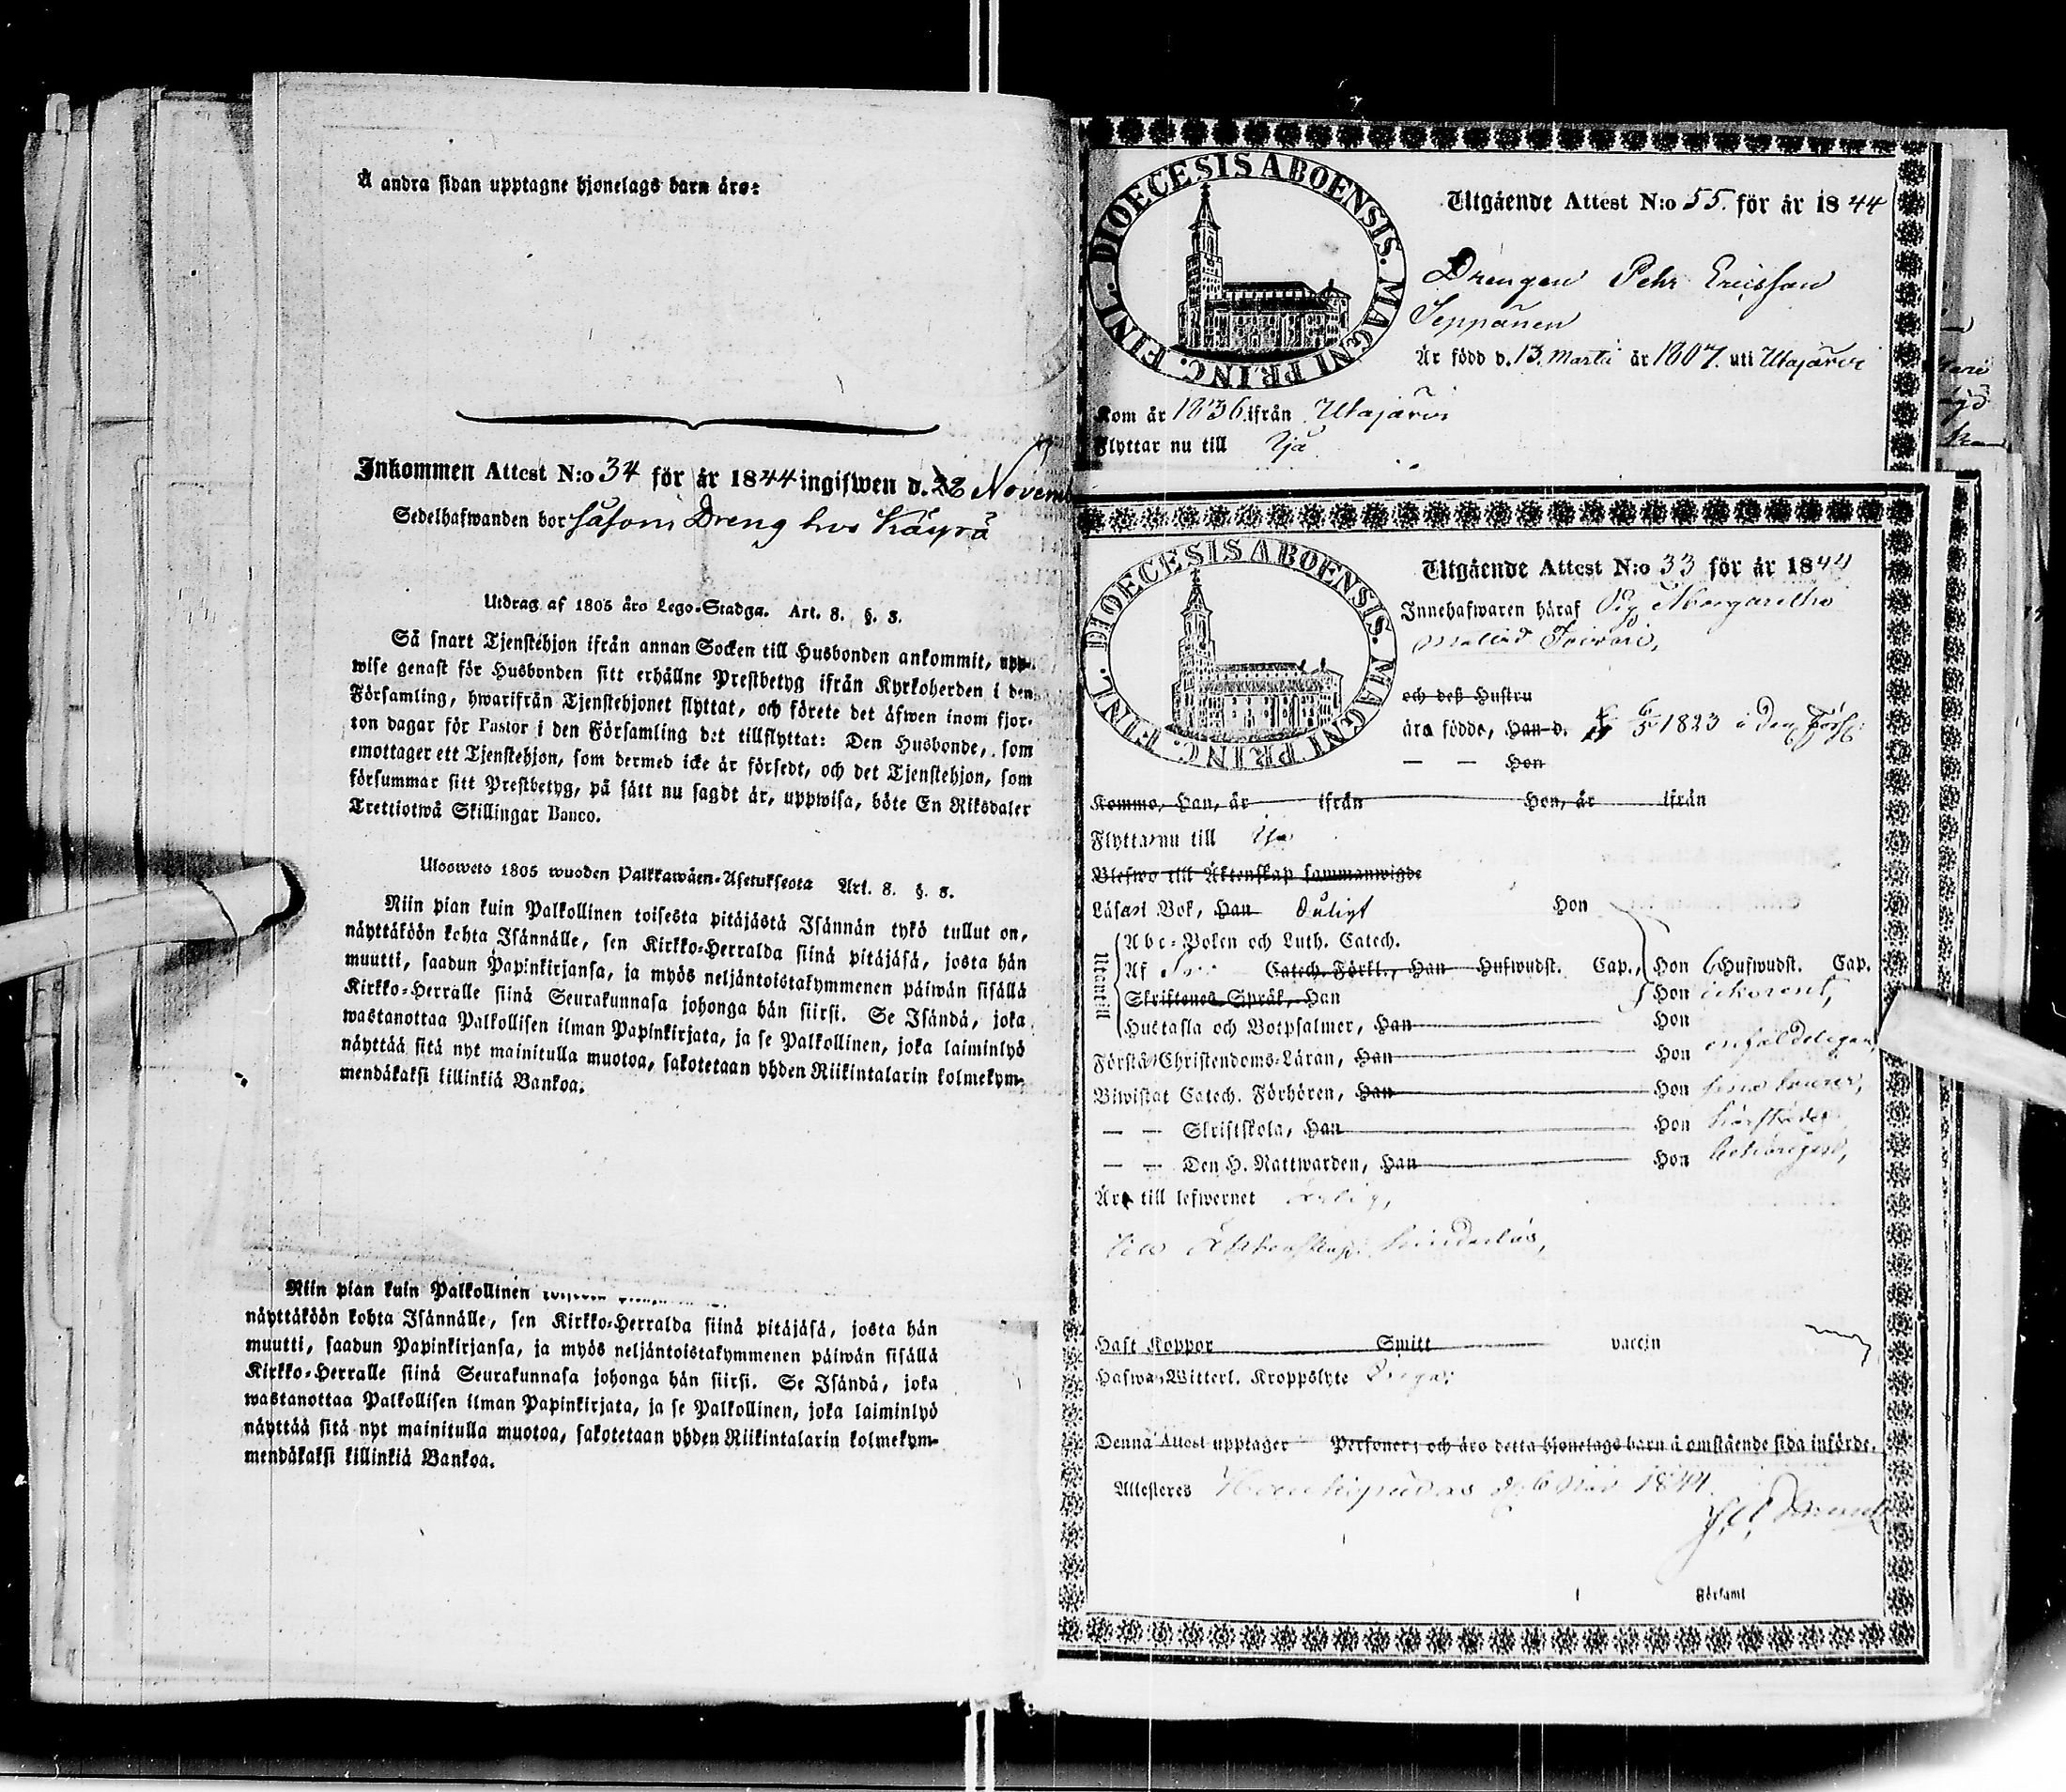 Å andra sidan upptagne hjonelags barn äro:
Inkommen Attest N:o 34 för år 1844 ingifwen d. 28 Novemb
Sedelhafwanden bor såsom Dreng hos Käyrä
Utdrag af 1805 års Lego-Stadga. Art. 8. §. 3.
Så snart Tjenstehjon ifrån annan Socken till Husbonden ankommit, upp-
wise genast för Husbonden sitt erhållne Prestbetyg ifrån Kyrkoherden i den
Församling, hwarifrån Tjenstehjonet flyttat, och förete det äfwen inom fjor-
ton dagar för Pastor i den Församling det tillflyttat: Den Husbonde, som
emottager ett Tjenstehjon, som dermed icke är försedt, och det Tjenstehjon, som
försummar sitt Prestbetyg, på sätt nu sagdt är, uppwisa, böte En Riksdaler
Trettiotwå Skillingar Banco.
Ulosweto 1805 wuoden Palkkawäen-Asetuksesta Art. 8. §. 3.
Niin pian kuin Palkollinen toisesta pitäjästä Isännän tykö tullut on,
näyttäköön kohta Isännälle, sen Kirkko-Herralda siinä pitäjäsä, josta hän
muutti, saadun Papinkirjansa, ja myös neljäntoistakymmenen päiwän sisällä
Kirkko-Herralle siinä Seurakunnasa johonga hän siirsi. Se Isändä, joka
wastanottaa Palkollisen ilman Papinkirjata, ja se Palkollinen, joka laiminlyö
näyttää sitä nyt mainitulla muotoa, sakotetaan yhden Riikintalarin kolmekym-
mendäkaksi killinkiä Bankoa.
Niin pian kuin Palkollinen
näyttäköön kohta Isännälle, sen Kirkko-Herralda siinä pitäjäsä, josta hän
muutti, saadun Papinkirjansa, ja myös neljäntoistakymmenen päiwän sisällä
Kirkko-Herralle siinä Seurakunnasa johonga hän siirsi. Se Isändä, joka
wastanottaa Palkollisen ilman Papinkirjata, ja se Palkollinen, joka laiminlyö
näyttää sitä nyt mainitulla muotoa, sakotetaan yhden Riikintalarin kolmekym-
mendäkaksi killinkiä Bankoa.
DIOECESIS ABOENSIS. MAGNI PRINC. FINL.
Utgående Attest N:o 55. för år 1844
Drengen Pehr Ericsson
Seppänen
Är född d. 13. Martii år 1807. uti Utajärvi
Kom år 1836 ifrån Utajärvi
Flyttar nu till Ijå
DIOECESIS ABOENSIS. MAGNI PRINC. FINL.
Utgående Attest N:o 33 för år 1844
Innehafwaren häraf Pig. Margaretha
och dess Hustru
äro födde, Han d. 6/5 1823 i den Förs:
— — Hon
Kommo, Han, år ifrån Hon, år ifrån
Flyttar nu till Ijo
Blefwo till Äktenskap sammanwigde
Läsa i Bok, Han duligt Hon
Utantill
Abc-Boken och Luth. Catech.
Af Catech. Förkl., Han Hufwudst. Cap., Hon 6 Hufwudst. Cap.
Skriftenes Språk, Han Hon
Hustafla och Botpsalmer, Han Hon
Förstå Christendoms-Läran, Han Hon
Biwistat Catech. Förhören, Han Hon
— — Skriftskola, Han Hon
— — Den H. Nattwarden, Han Hon
Äro till lefwernet
till Äktenskap hinderlös,
Haft Koppor Smitt vaccin
Hafwa Witterl. Kroppslyte Inga:
Denna Attest upptager Personer; och äro detta hjonelags barn å omstående sida införde.
Attesteres Haukipudas d. 6 Nov 1844.
Församl